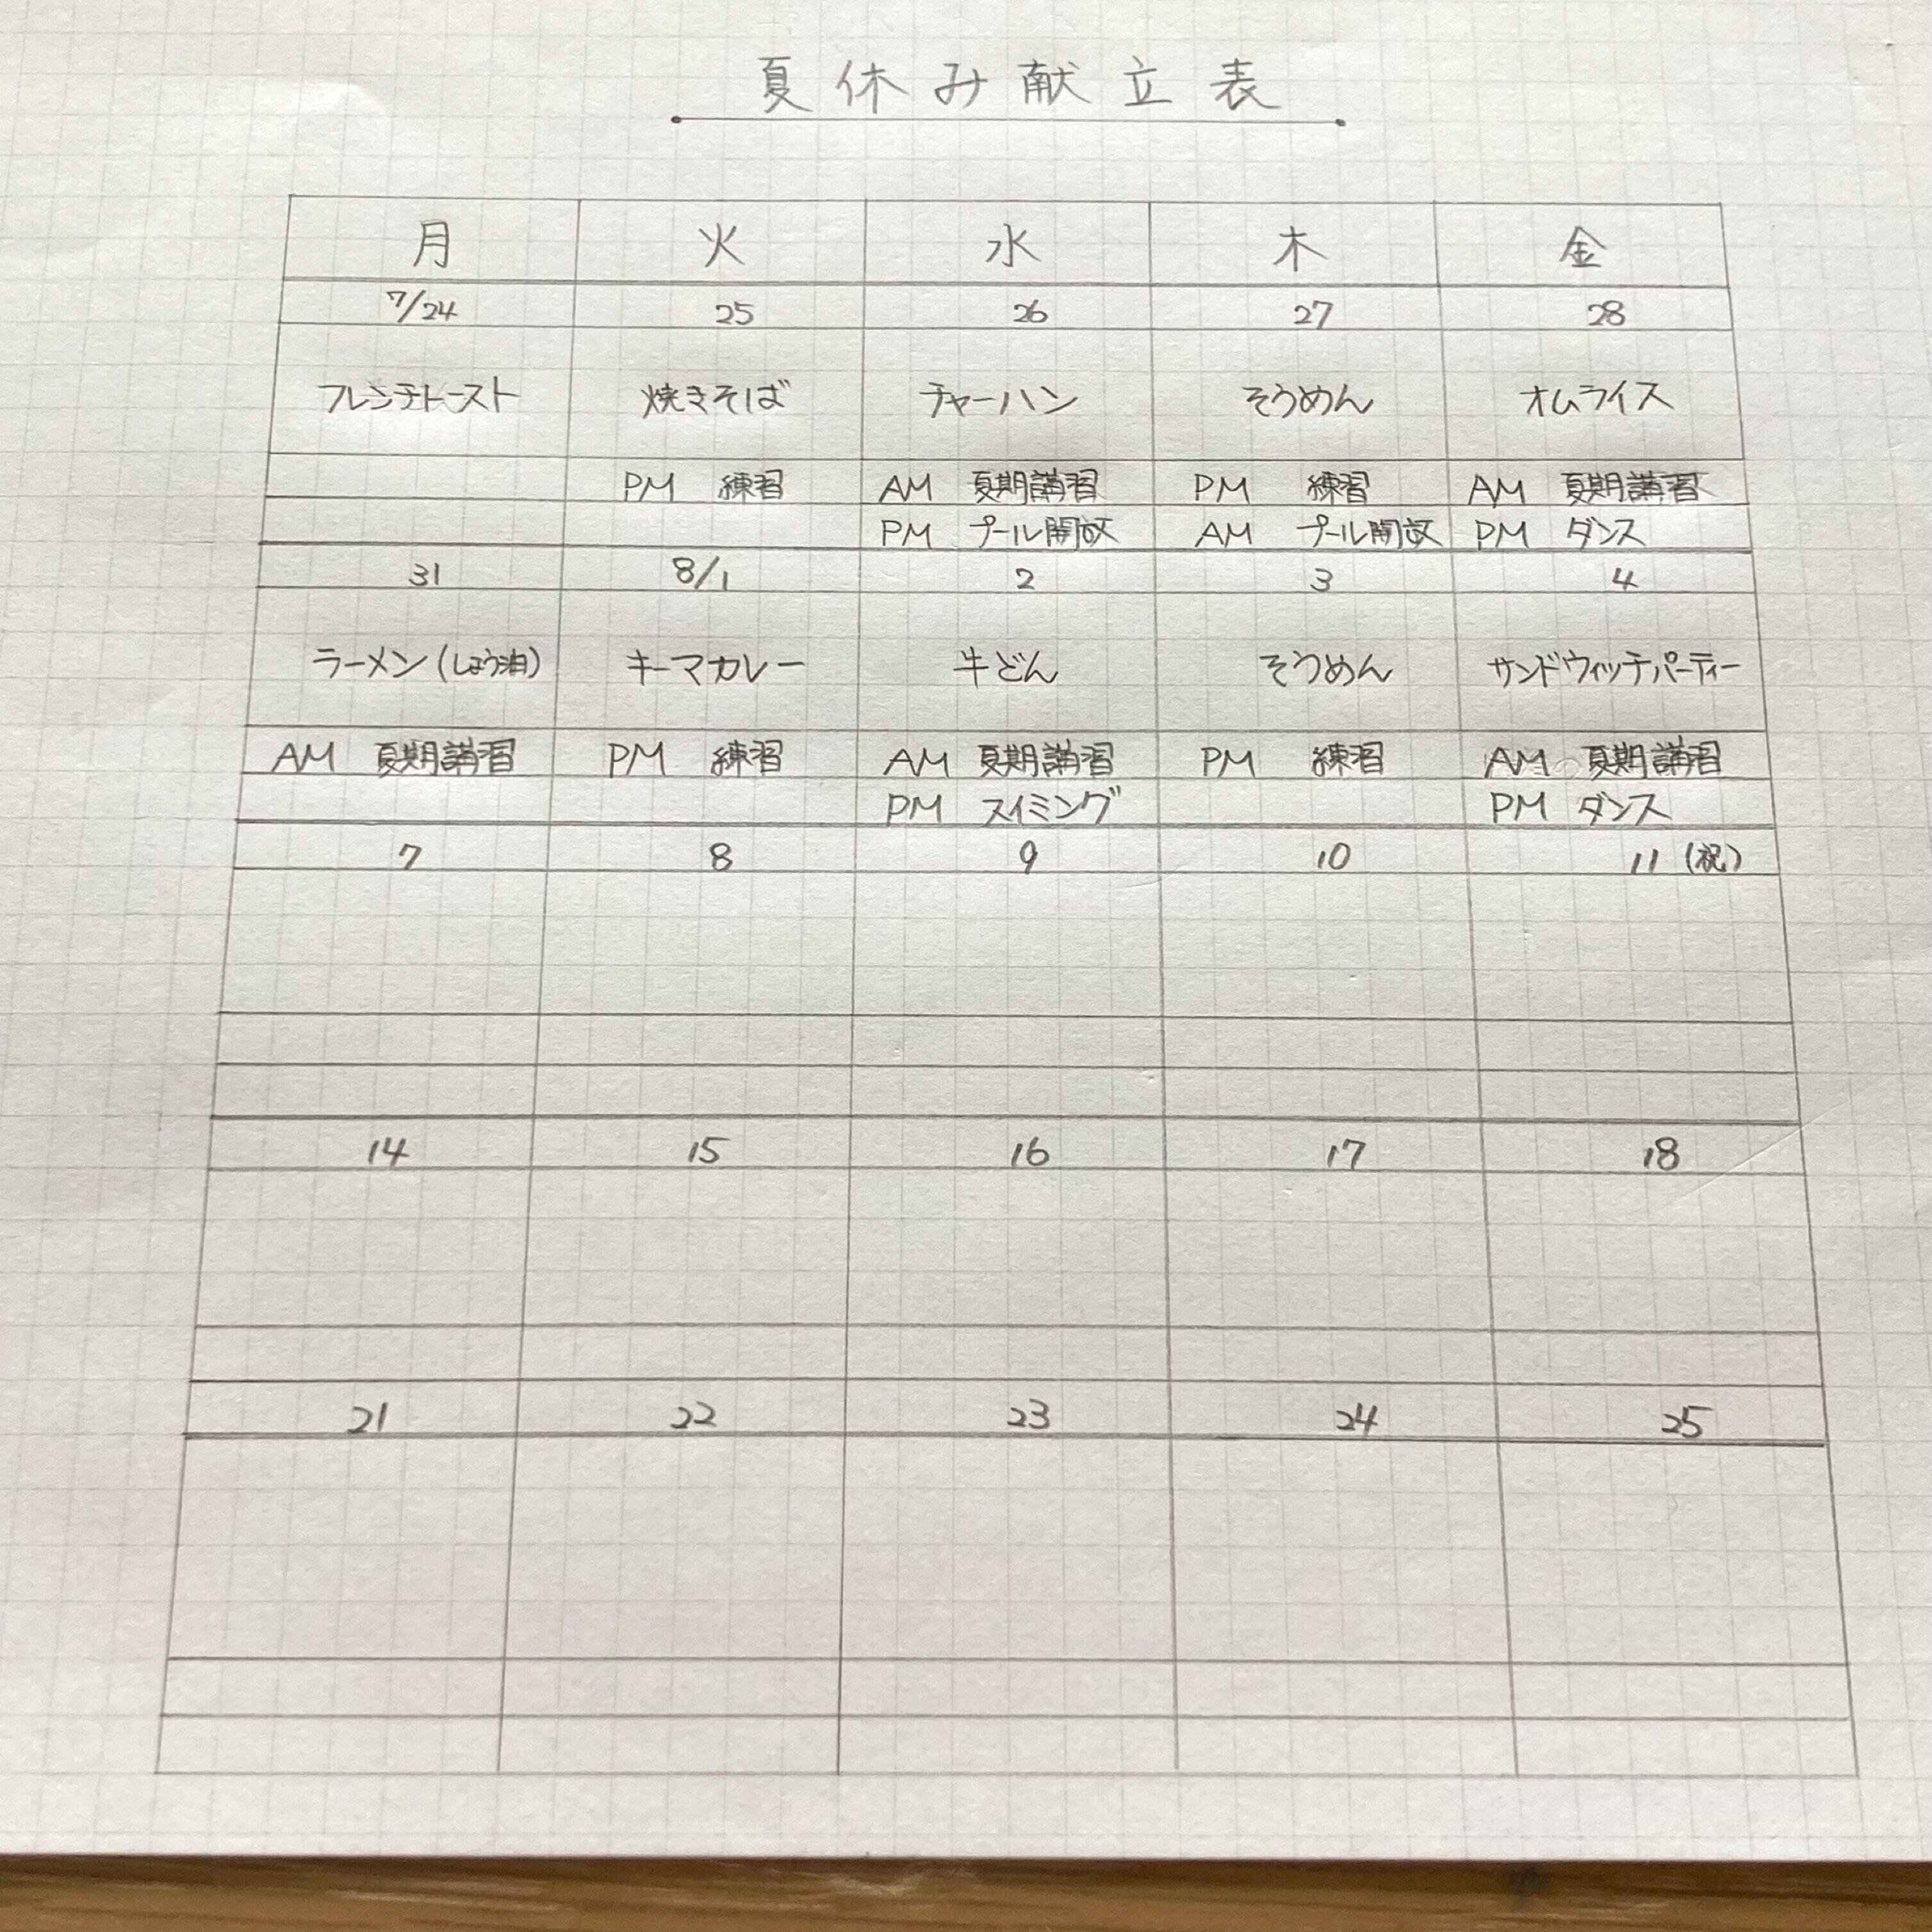 夏休み献立表
月 火 水 木 金
7/24 25 26 27 28
フレンチトースト 焼きそば チャーハン そうめん オムライス
PM 練習 AM 夏期講習 PM 練習 AM 夏期講習
PM プール開放 AM プール開放 PM ダンス
31 8/1 2 3 4
ラーメン(しょう油) キーマカレー 牛どん そうめん サンドウィッチパーティー
AM 夏期講習 PM 練習 AM 夏期講習 PM 練習 AM 夏期講習
PM スイミング PM ダンス
7 8 9 10 11(祝)
14 15 16 17 18
21 22 23 24 25